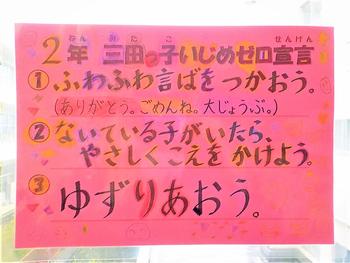 2年 三田っ子いじめゼロ宣言
①ふわふわ言ばをつかおう。
(ありがとう。ごめんね。大じょうぶ。)
②ないている子がいたら、
やさしくこえをかけよう。
③ゆずりあおう。